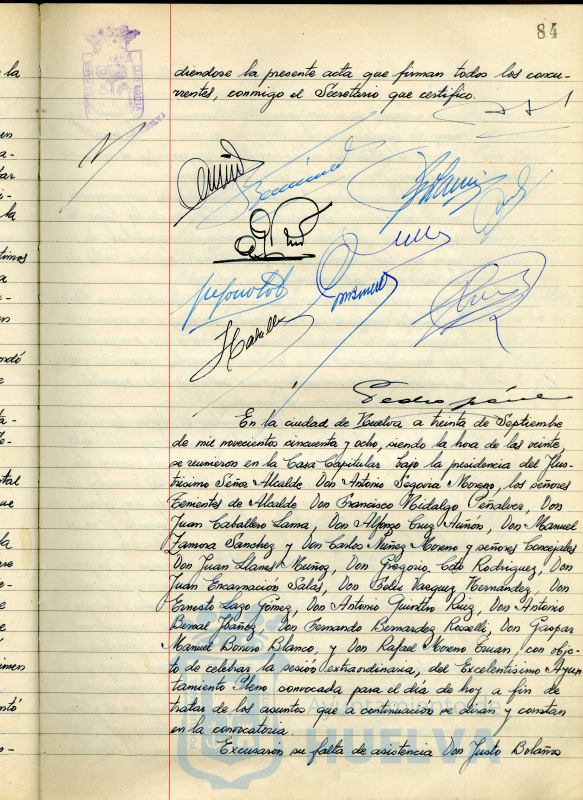 84
diendose la presente acta que firman todos los concu-
rrentes, conmigo el Secretario que certifico.
En la ciudad de Huelva a treinta de Septiembre
de mil novecientos cincuenta y ocho, siendo la hora de las veinte,
se reunieron en la Casa Capitular bajo la presidencia del Ilus-
trisimo Señor Alcalde Don Antonio Segovia Moreno, los señores
Tenientes de Alcalde Don Francisco Hidalgo Peñalver, Don
Juan Caballero Lama, Don Alfonso Cruz Auñon, Don Manuel
Zamora Sanchez y Don Carlos Nuñez Moreno y señores Concejales
Don Juan Llanes Muñoz, Don Gregorio Coto Rodriguez, Don
Juan Encarnación Salas, Don Felix Vazquez Hernández, Don
Ernesto Lazo Gómez, Don Antonio Quintin Ruiz, Don Antonio
Bernal Ibañez, Don Fernando Bernardez Rosselli, Don Gaspar
Manuel Bonero Blanco, y Don Rafael Moreno con obje-
to de celebrar la sesión extraordinaria, del Excelentisimo Ayun-
tamiento Pleno convocada para el día de hoy a fin de
tratar de los asuntos que a continuación se dirán y constan
en la convocatoria.
Excusaron su falta de asistencia Don Justo Bolaños
Ayuntamiento de
HUELVA